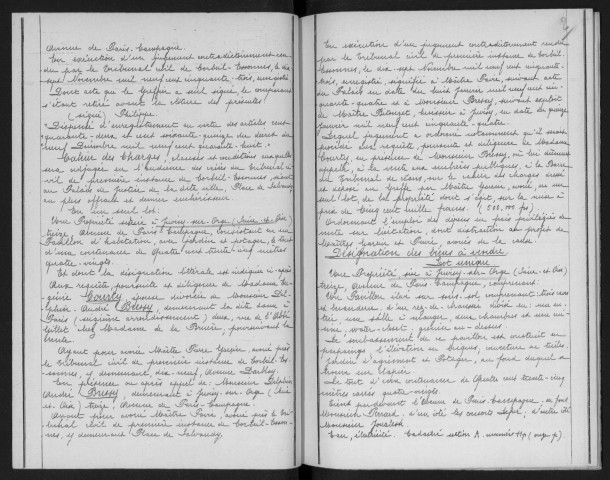 Avenue de Paris-Campagne.
En exécution d'un jugement contradictoirement ren
du par le Tribunal civil de Corbeil-Essonnes, le dix
sept Novembre mil neuf cent cinquante-trois, enregistré
Dont acte que le Greffier a seul signé, le comparant
s'étant retiré avant la clôture des présentes
(signé) Philippe.
"Dispensé d'enregistrement en vertu des articles cent
quarante-deux et cent soixante-quinze du décret du
neuf Décembre mil neuf cent quarante-huit."
Cahier des Charges, clauses et conditions auxquelles
sera adjugée en l'audience des criées du tribunal ci
vil de première instance de Corbeil-Essonnes, séant
au Palais de Justice de la dite ville, Place de Salvandy
au plus offrant et dernier enchérisseur.
En un seul lot:
Une Propriété située à Juvisy-sur-Orge (Seine-et-Oise)
treize, Avenue de Paris-Campagne, consistant en un
Pavillon d'habitation, avec jardin et potager, le tout
d'une contenance de quatre cent trente-cinq mètres
quatre-vingts.
Et dont la désignation littérale est indiquée ci-après
Aux requête, poursuite et diligence de Madame Eu-
génie Courty épouse divorcée de Monsieur Del-
phin-André Bressy, demeurant la dite dame à
Paris ( arrondissement) deux, rue de l'Abbé
Gillet chez Madame de la , poursuivant la
vente
Ayant pour avoué Maître Pierre , avoué près
le Tribunal civil de première instance de Corbeil-Es-
sonnes, y demeurant, dix-neuf, Avenue Darblay.
En présence ou après appel de: Monsieur Delphin
André Bressy, demeurant à Juvisy-sur-Orge (Sein
et-Oise) treize, Avenue de Paris-Campagne.
Ayant pour avoué Maître Pavie, avoué près le tri
bunal civil de première instance de Corbeil-Esson-
nes, y demeurant Place de Salvandy.
En exécution d'un jugement contradictoirement rendu
par le Tribunal civil de première instance de Corbeil-
Essonnes, le dix-sept Novembre mil neuf cent cinquante-
trois, enregistré, signifié à Maître Pavie, suivant acte
du Palais en date du Janvier mil neuf cent cin
quante-quatre et à Monsieur Bressy, suivant exploit
de Maître , huissier à Juvisy, en date du quinze
Janvier mil neuf cent cinquante-quatre.
Lequel jugement a ordonné notamment qu'il serait
procédé aux requête, poursuite et diligence de Madame
Courty, en présence de Monsieur Bressy, ou lui dûment
appelé, à la vente aux enchères publiques, à la Barre
du Tribunal de céans, sur le cahier des charges dressé
et déposé au Greffe par Maître , avoué, en un
seul lot, de la propriété dont s'agit, sur la mise à
prix de Cinq cent mille francs (500.000 frs).
Ordonnant l'emploi des dépens en frais privilégiés de
vente sur licitation, dont distraction au profit de
Maîtres et Pavie, avoués de la cause.
Désignation des biens à vendre
Lot unique
Une Propriété, sise à Juvisy-sur-Orge (Seine-et-Oise)
treize, avenue de Paris-Campagne, comprenant:
Un Pavillon élevé sur sous-sol, comprenant: trois caves
et buanderie, d'un rez-de-chaussée divisé en: en
trée, une salle à manger, deux chambres et une cui-
sine, water-closet, grenier au-dessus
Le soubassement de ce pavillon est construit en
parpaings, l'élévation en briques, couverture en tuiles.
Jardin d'agrément et Potager, au fond duquel se
trouve un clapier.
Le tout d'une contenance de Quatre cent trente-cinq
mètres carrés quatre-vingts.
Tenant par devant l'Avenue de Paris-Campagne, au fond
Monsieur , d'un côté les consorts , d'autre côté
Monsieur .
Eau, électricité. Cadastré section A, numéro